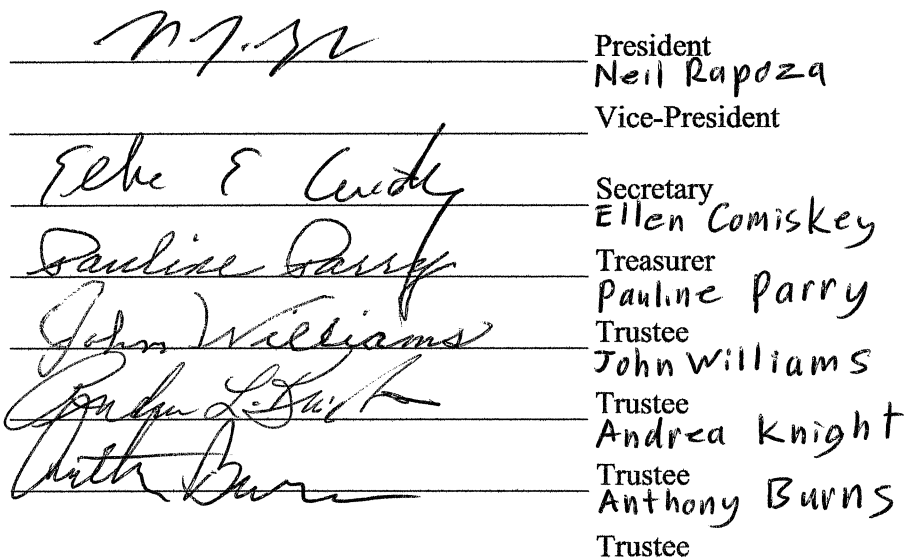 President
Neil Rapoza
Vice-President
Secretary
Ellen Comiskey
Pauline Parry
Treasurer
Pauline Parry
John Williams
Trustee
John Williams
Trustee
Andrea Knight
Trustee
Anthony Burns
Trustee